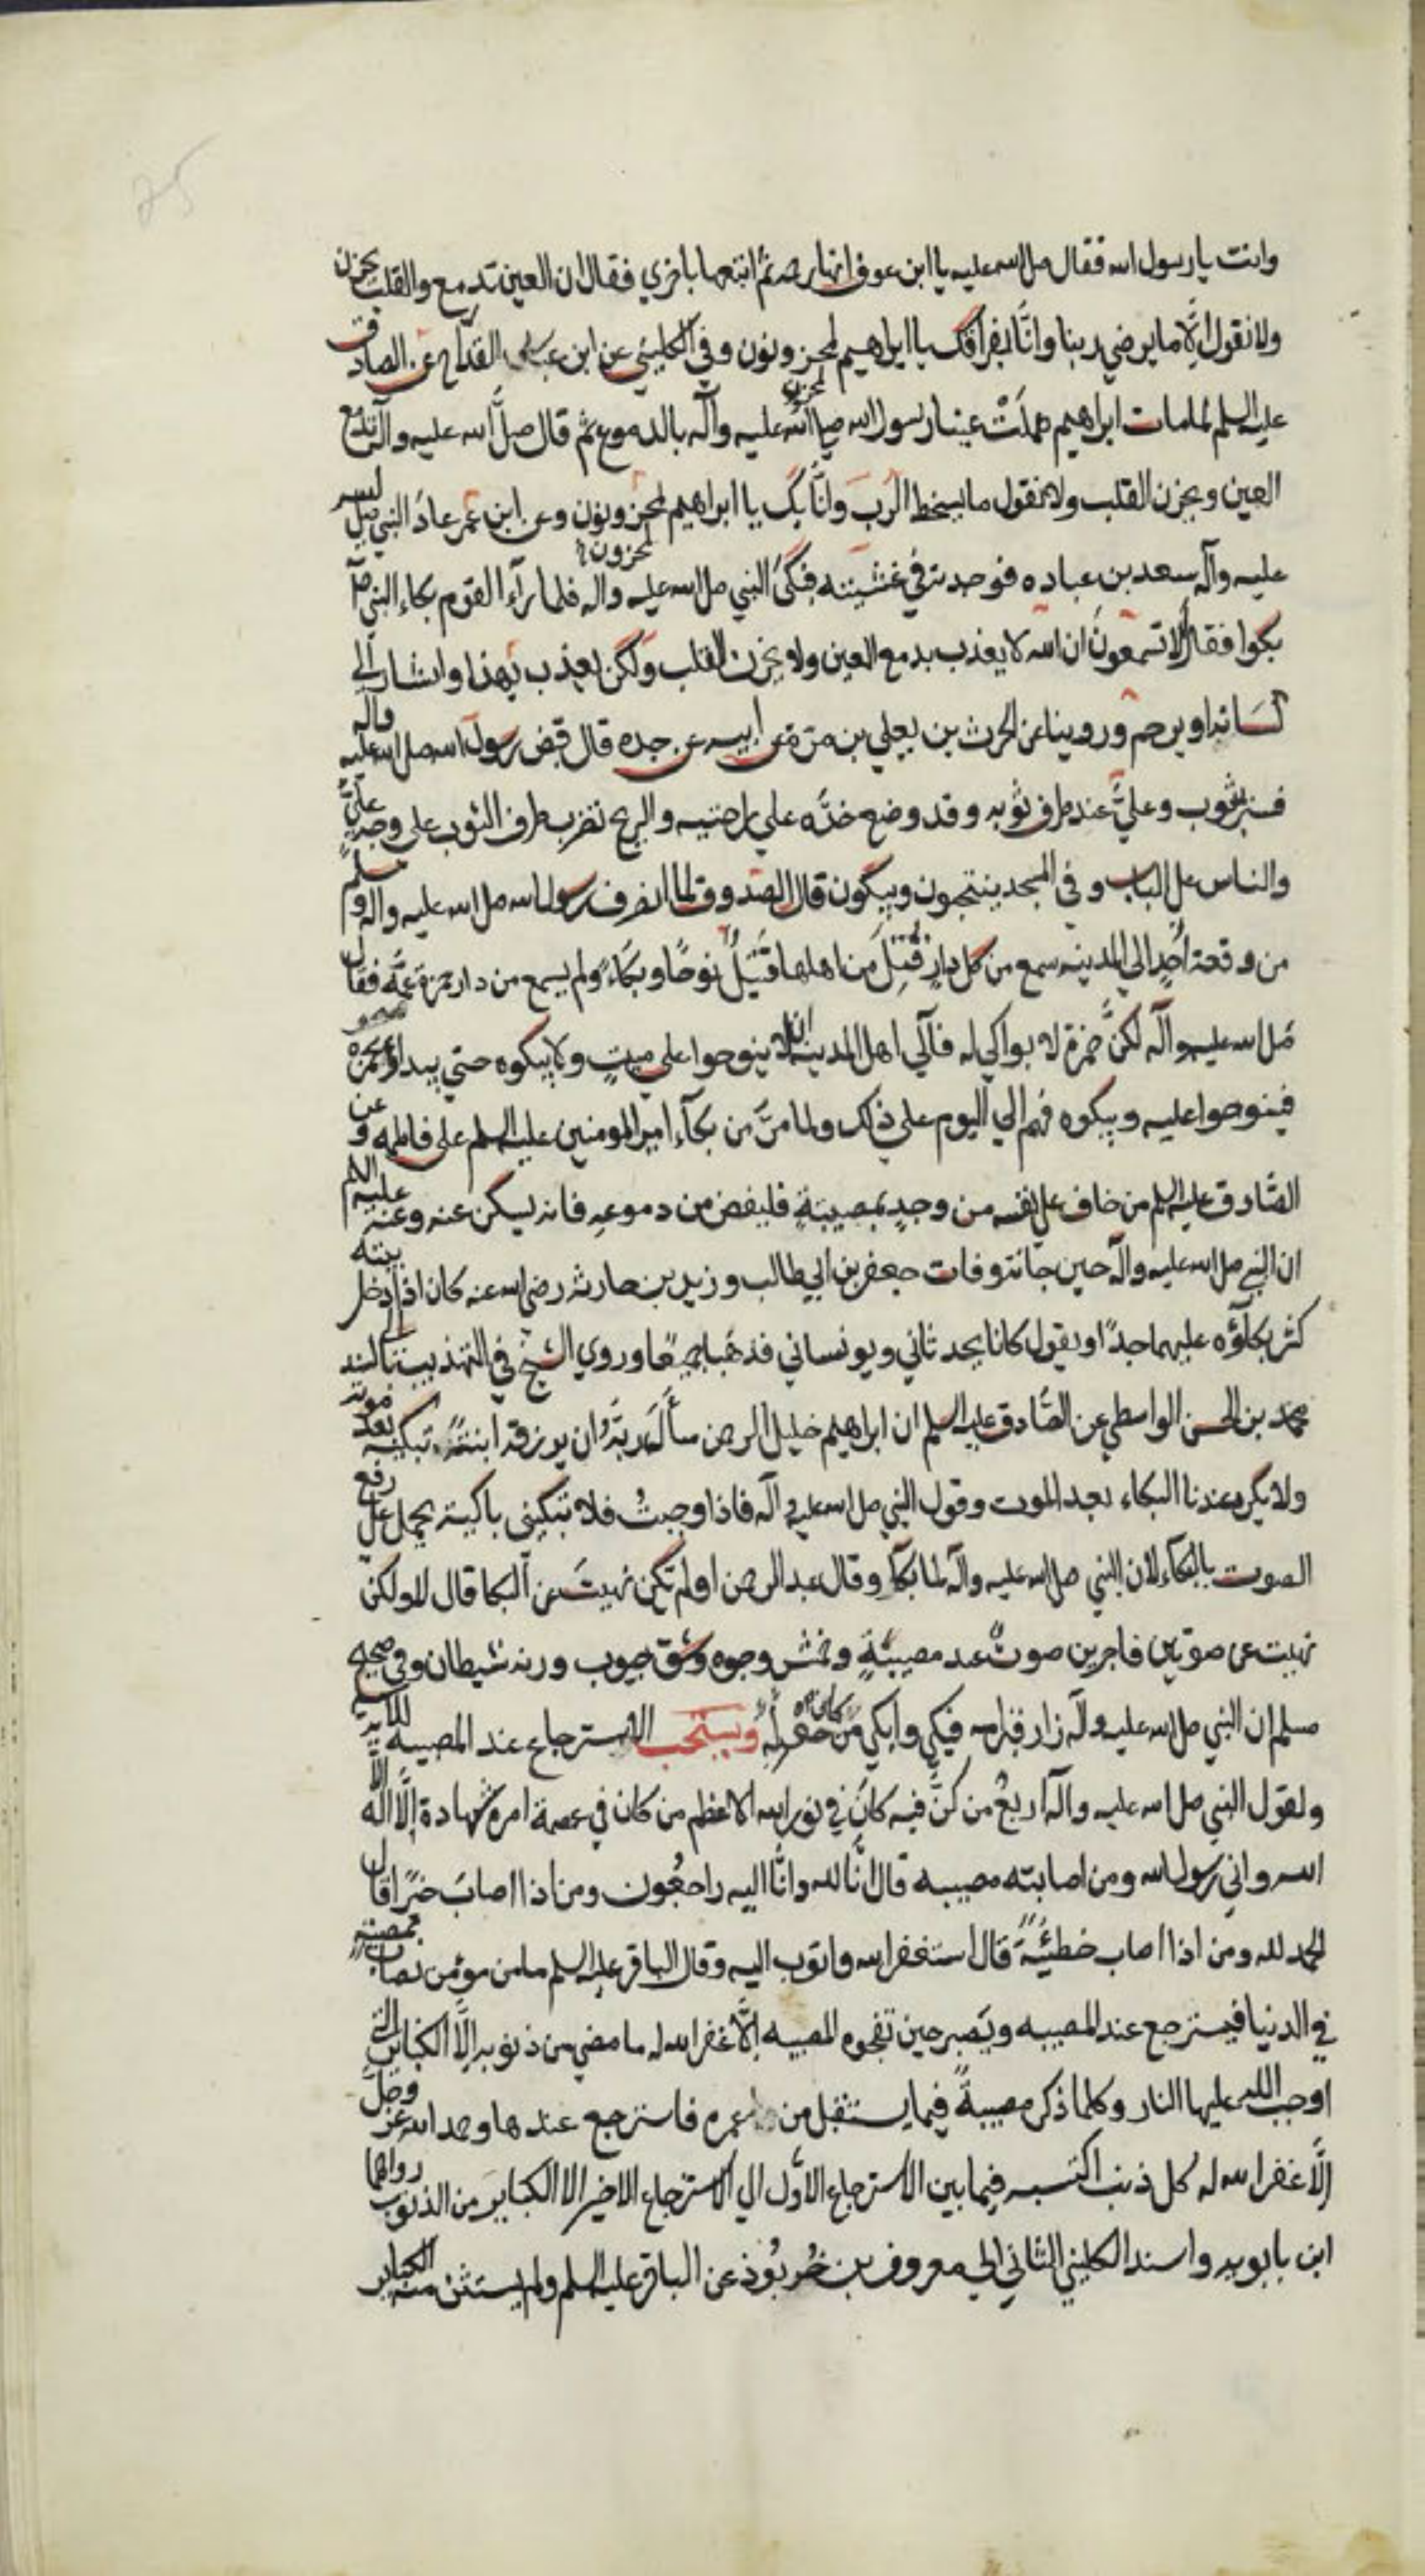 وانت يا رسول الله فقال صلى الله عليه يا ابن عوف انها رحمة ثم اتبعها باخري فقال ان العين تدمع والقلب يحزن
ولا نقول الا ما يرضي ربنا وانّا بفراقك يا ابراهيم لمحزونون وفي الكليني عن ابن القداح عن الصادق
عليه السلم لما مات ابراهيم هملَتْ عينا رسول الله صلى الله عليه وآله بالدموع ثم قال صلّى الله عليه وآله تدمع
العين ويحزن القلب ولا نقول ما يسخط الرب وانّا بك يا ابراهيم لمحزونون وعن ابن عمر عادَ النبي صلى
عليه وآله سعد بن عباده فوجده في غشيته فبكىَ النبي صلى الله عليه واله فلما رآء القوم بكاء النبي ص
بكوا فقال ألا تسمعونَ ان الله لا يعذب بدمع العين ولا بحزن القلب ولكن يعذب بهذا واشار الي
لسَانه او يرحم وروينا عن الحرث بن يعلي بن مرة عن ابيه عن جده قال قبض رسول الله صلى الله عليه واله
فستر بثوب وعليٌّ عند طرف ثوبه وقد وضع خدَّه علي راحتيه والريح تضرب طرف الثوب على وجه عليٍّ
والناس على الباب وفي المسجد ينتحبون ويبكون قال الصدوق لما انصرف رسول الله صلى الله عليه واله وسلم
من وقعة اُحدٍ الي المدينه سمع من كل دارٍ قُتِلَ من اهلها قَتَيلٌ نوحًا وبكاءً ولم يسمع من دار حمزة عمّه فقال
صلى الله عليه وآله لكنَّ حمزة لا بواكي له فآلي اهل المدينه ان لا ينوحوا علي ميتٍ ولا يبكوه حتي يبداؤ بحمزه
فينوحوا عليه ويبكوه فهم الي اليوم علي ذلك ولما مرَّ من بكآء امير المومنين عليه السلم على فاطمه وعن
الصّادق عليه السلم من خاف على نفسه من وجدٍ بمصيبةٍ فليفض من دموعِهِ فانه يسكن عنه وعنه عليه السلم
ان النبي صلى الله عليه وآله حين جائته وفات جعفر بن ابي طالب وزيد بن حارثه رضي الله عنه كان اذا دخل بيته
كثر بكآؤه عليهما جدًا ويقول كانا يحدثاني ويونساني فذهَبا جميعًا وروي الشيخ في التهذيب
محمد بن الحسن الواسطي عن الصّادق عليه السلم ان ابراهيم خليل الرحمن سأل ربهُ ان يرزقه ابنتهً تبكيه بعد موته
ولا يكره عندنا البكاء بعد الموت وقول النبي صلى الله عليه وآله فاذا وجبتْ فلا تبكين باكية يحمل على رفع
الصوت بالبكآء لان النبي صلى الله عليه وآله لما بكآ وقال عبد الرحمن اولم تكن نهيتَ عن البكا قال لا ولكن
نهيت عن صوتين فاجرين صوتٌ عند مصيبةٍ وخمش وجوه وشق جيوب ورنه شيطان وفي صحيح
مسلم ان النبي صلى الله عليه وآله زار قبر امه فبكي وابكي من حوله ويستحب الاسترجاع عند المصيبه للآية
ولقول النبي صلى الله عليه وآله اربعٌ من كنّ فيه كانَ في نور الله الاعظم من كان في عصمة امره شهادة الّا اله الا
الله واني رسول الله ومن اصابته مصيبه قال انّا لله وانّا اليه راجعُون ومن اذا اصابَ خيرًا قال
الحمد لله ومن اذا اصاب خطيئةً قال استغفر الله واتوب اليه وقال الباقر عليه السلم ما من مؤمن يصاب بمصيبة
في الدنيا فيسترجع عند المصيبه ويَصبر حين تفجوه المصيبه الّا غفر الله له ما مضي من ذنوبه الّا الكبائر التي
اوجب الله عليها النار وكلما ذكر مصيبةً فيما يستقبل من عمره فاسترجع عندها وحمد الله عز وجل
الّا غفر الله له كل ذنب اكتسبه فيما بين الاسترجاع الاوّل الي الاسترجاع الاخير الا الكبايرَ من الذنوب رواهما
ابن بابويه واسند الكليني الثاني الي معروف بن خُربُوذ عن الباقر عليه السلم ولم يستثن منه الكبائر